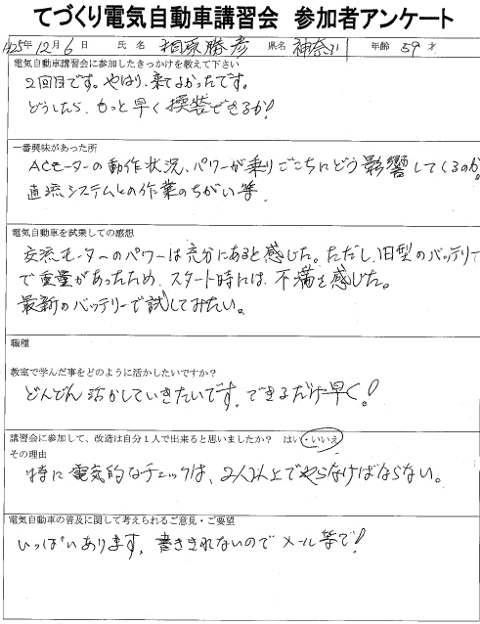 てづくり電気自動車講習会 参加者アンケート
'25年12月6日 氏名 相原勝彦 県名 神奈川 年齢 59才
電気自動車講習会に参加したきっかけを教えて下さい
2回目です。やはり、来てよかったです。
どうしたら、もっと早く換装できるか!
一番興味があった所
ACモーターの動作状況、パワーが乗りごこちにどう影響してくるのか。
直流システムとの作業のちがい等
電気自動車を試乗しての感想
交流モーターのパワーは充分にあると感じた。ただし、旧型のバッテリー
で重量があったため、スタート時には、不満を感じた。
最新のバッテリーで試してみたい。
職種
教室で学んだ事をどのように活かしたいですか?
どんどん活かしていきたいです。できるだけ早く!
講習会に参加して、改造は自分1人で出来ると思いましたか? はい・いいえ
その理由
特に電気的なチェックは、2人以上でやらなければならない。
電気自動車の普及に関して考えられるご意見・ご要望
いっぱいあります、書ききれないのでメール等で!